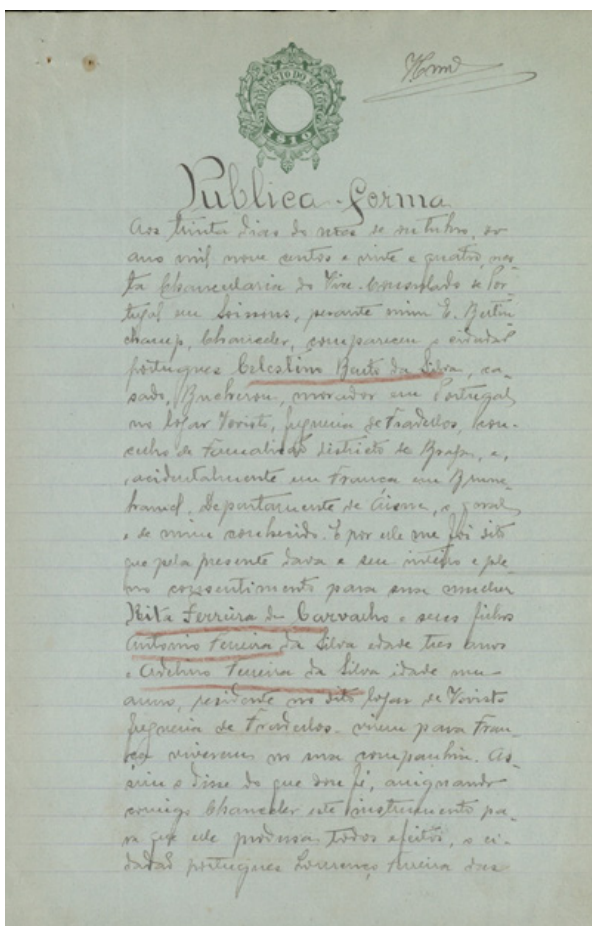 IMPOSTO DO SELO
1$10
Publica-forma
Aos trinta dias do mes de outubro, do
ano mil nove centos e vinte e quatro, nes-
ta Chancelaria do Vice-Consulado de Por-
tugal em Soissons, perante mim E. Bertin
champ, Chanceler, compareceu o cidadão
portugues Celestino Bento da Silva, ca-
sado, Bucheron, morador em Portugal
no lugar freguesia de Fradelos, con-
celho de Famalicão districto de Braga, e,
acidentalmente em França em
Departamento de Aisne, o qual
e de mim conhecido. E por ele me foi dito
que pela presente dava o seu inteiro e ple-
no consentimento para sua mulher
Rita Ferreira de Carvalho e seus filhos
Antonio Ferreira da Silva edade tres anos
e Adelino Ferreira da Silva idade um
anno, residente no dito lugar de
freguesia de Fradelos virem para Fran-
ça viverem na sua companhia. As-
sim o disse do que dou fé, assignando
comigo Chanceler este instrumento pa-
ra que ele produsa todos efeitos, o ci-
dadão portugues Lourenço Pereira das